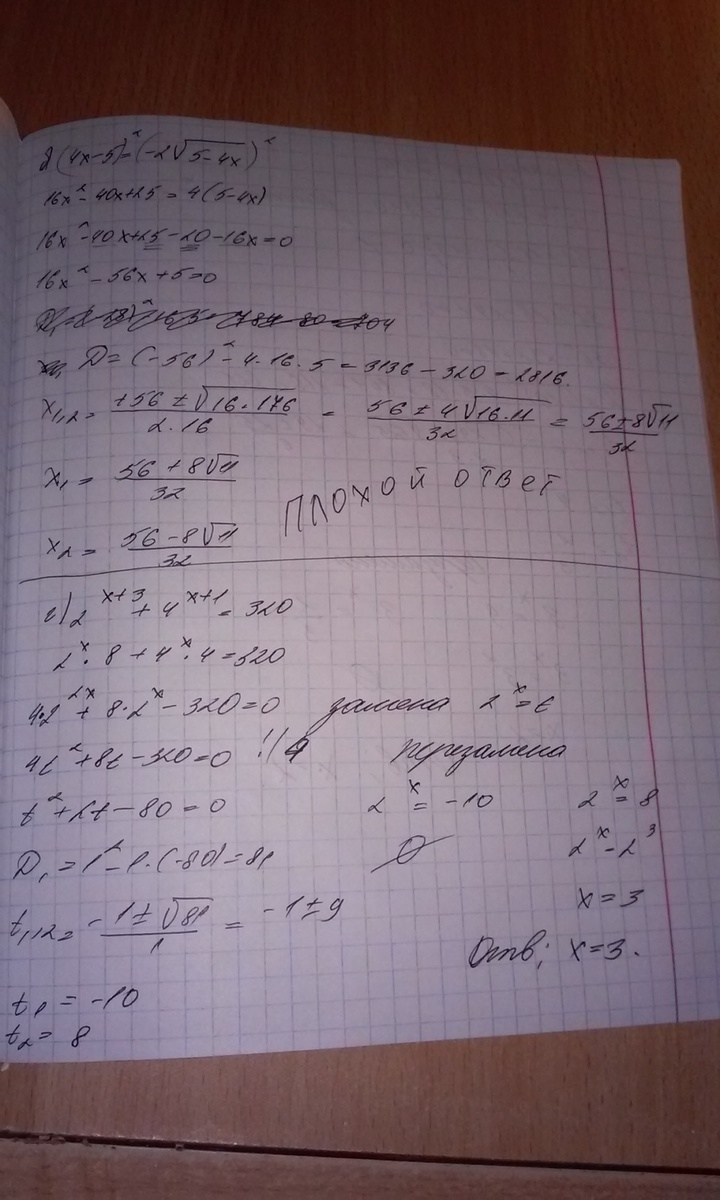 2(4x-5)²=(-2√5-4x)²
16x²-40x+25=4(5-4x)
16x²-40x+25-20-16x=0
16x²-56x+5=0
D=(-56)²-4·16·5=3136-320=2816.
x₁,₂= +56±√16·176 / 2·16 = 56±4√16·11 / 32 = 56±8√11 / 32
x₁= 56+8√11 / 32
ПЛОХОЙ ОТВЕТ
x₂= 56-8√11 / 32
г) 2^x+3 + 4^x+1 = 320
2^x·8+4^x·4=320
4·2^2x+8·2^x-320=0 замена 2^x=t
4t²+8t-320=0 !/4 перезамена
t²+2t-80=0 2^x=-10 2^x=8
D₁=1²-1·(-80)=81 ∅ 2^x-2³
t₁,₂= -1±√81 / 1 = -1±9 x=3
Отв; x=3.
t₁=-10
t₂=8